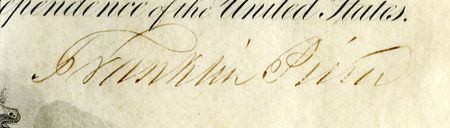 ependence of the United States.
Franklin Pierce